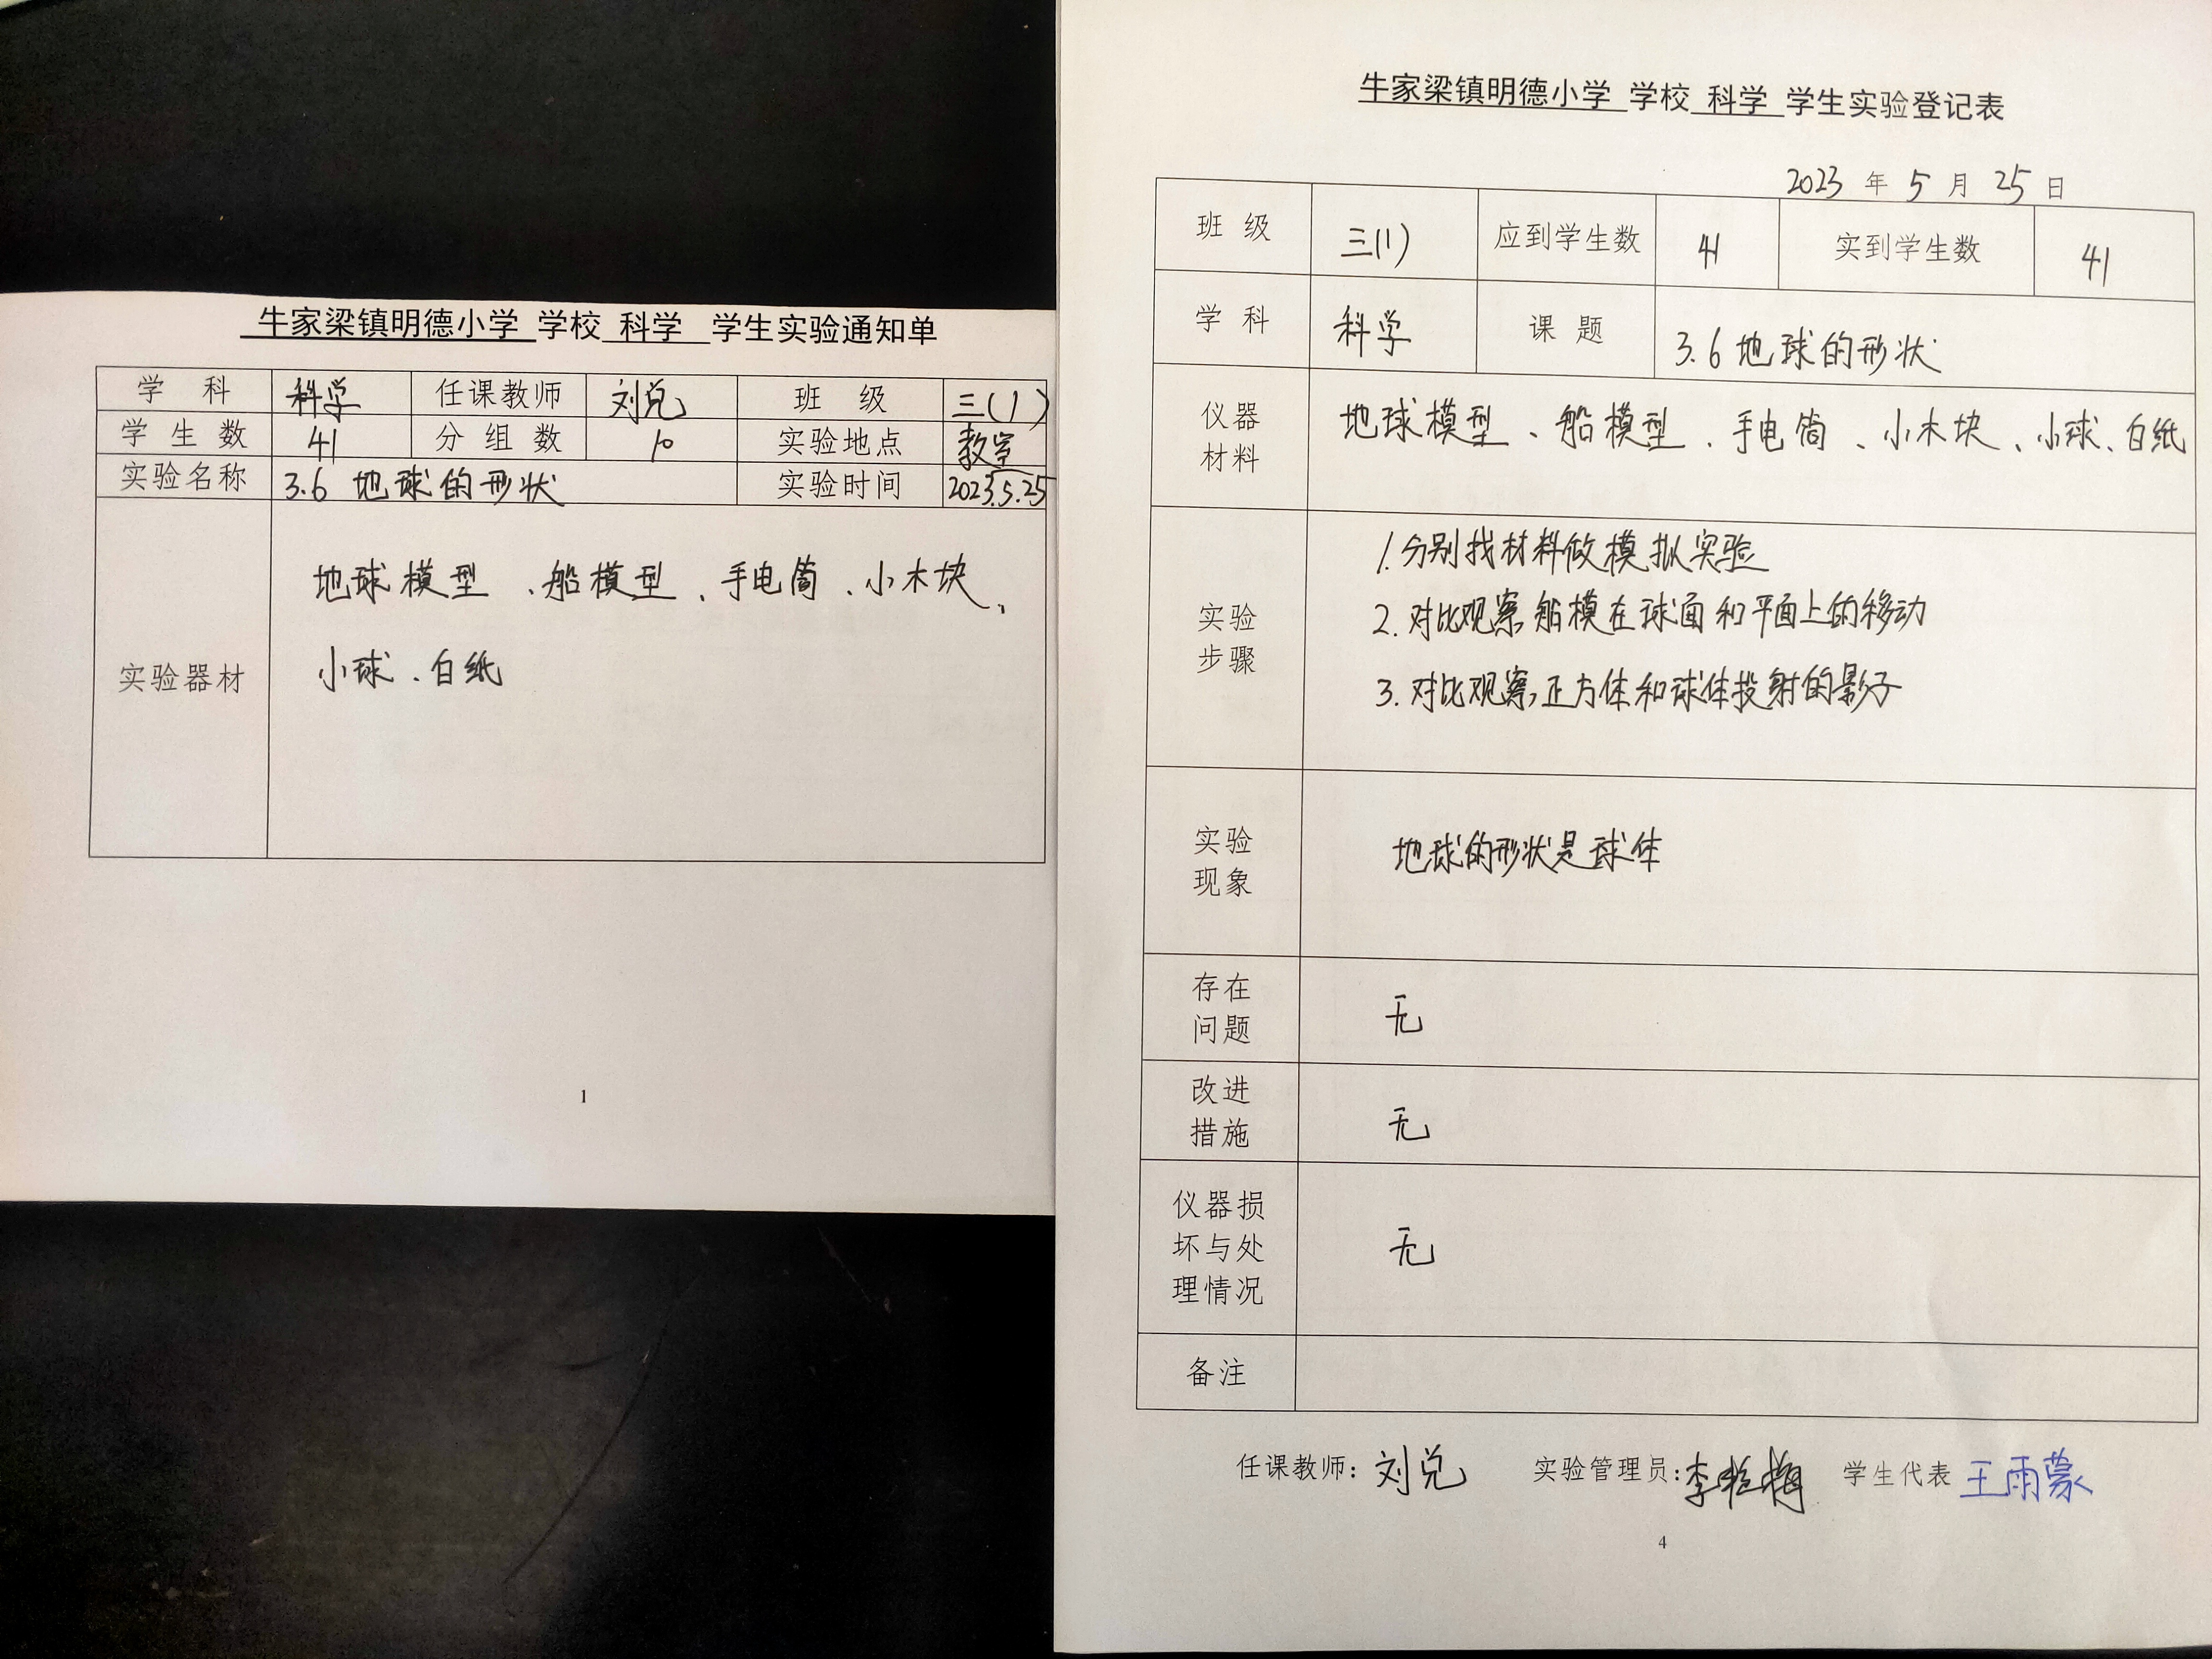 牛家梁镇明德小学 学校 科学 学生实验通知单
学 科 科学 任课教师 刘兑 班 级 三(1)
学 生 数 41 分 组 数 10 实验地点 教室
实验名称 3.6 地球的形状 实验时间 2023.5.25
实验器材
地球模型 、船模型 、手电筒 、小木块、
小球 、白纸
1
牛家梁镇明德小学 学校 科学 学生实验登记表
2023 年 5 月 25 日
班 级 三(1) 应到学生数 41 实到学生数 41
学 科 科学 课 题 3.6 地球的形状
仪器
材料
地球模型 、船模型 、手电筒 、小木块 、小球、白纸
实验
步骤
1.分别找材料做模拟实验
2.对比观察,船模在球面和平面上的移动
3.对比观察,正方体和球体投射的影子
实验
现象
地球的形状是球体
存在
问题
无
改进
措施
无
仪器损
坏与处
理情况
无
备注
任课教师: 刘兑 实验管理员: 李 梅 学生代表 王雨蒙
4